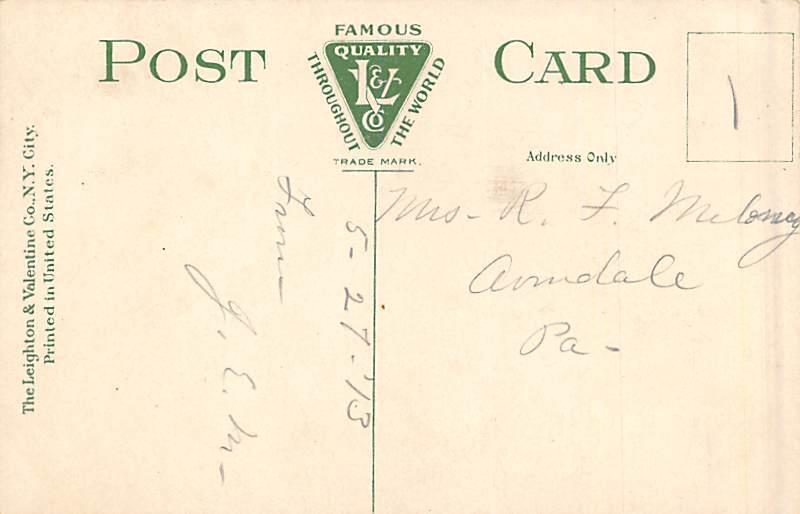 POST CARD
FAMOUS
QUALITY
L&V
Co
THROUGHOUT THE WORLD
TRADE MARK.
Address Only
The Leighton & Valentine Co., N.Y. City.
Printed in United States.
5-27-'13
From—
J. E. M—
Mrs- R. F. Meloney
Avondale
Pa-